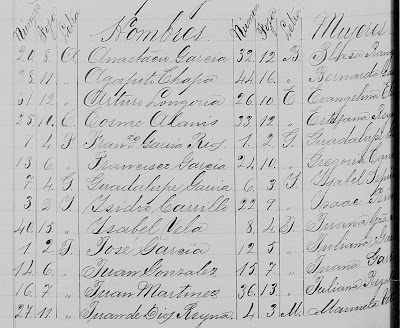 Número Foja Letra Hombres. Número Foja Letra Mujeres
20. 8. A. Anastacio Garcia 32. 12. B. Blasa
28. 11. " Agapito Chapa 44. 16. " Bernarda
31. 12. " Arturo Longoria 26. 10. E. Evangelina
25. 10. C. Cosme Alanis 33. 12 " Estefana
1. 4. F. Fran.co Garcia Rs. 1. 2. G. Guadalupe
13. 6. " Francisco Garcia 24. 10. " Gregoria
7. 4. G. Guadalupe Garcia 6. 3. I. Isabel
3. 2. I. Isidro Carrillo 22. 9. " Isaac
40. 15. " Isabel Vela 8. 4. J. Juana
1. 2. J. José Garcia 12. 5. " Juliana
14. 6. " Juan Gonzalez 15. 7. " Juana
16. 7. " Juan Martinez 36. 13. " Juliana
27. 11. " Juan de Dios Reyna 4. 3. M. Manuela